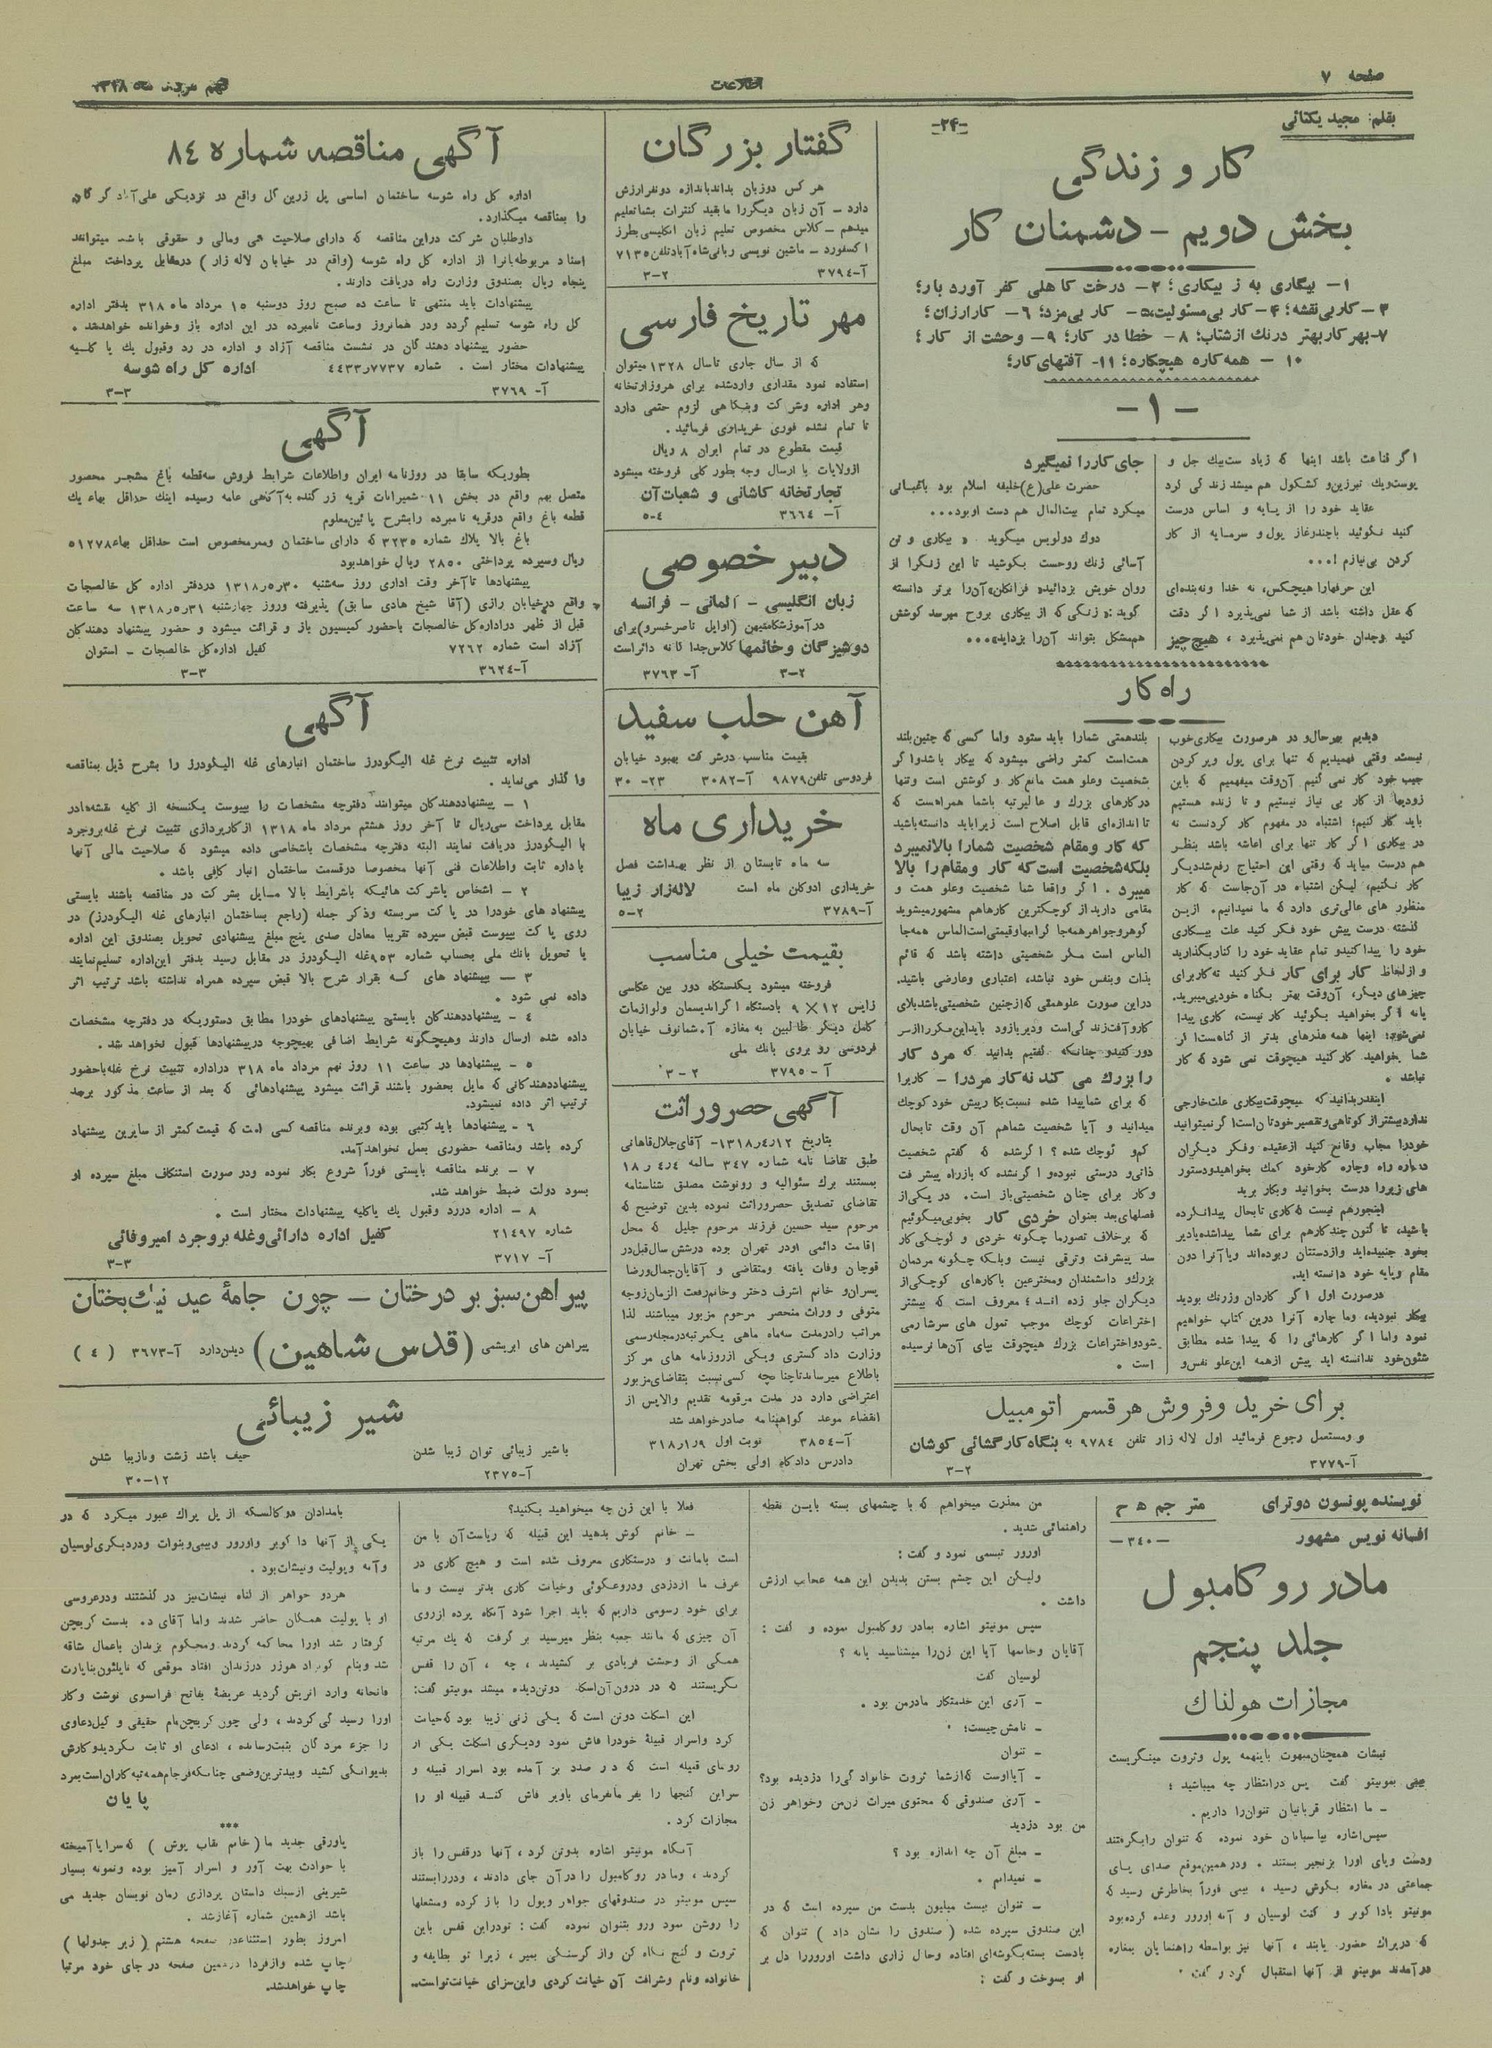 صفحه ۷
اطلاعات
بقلم: مجید یکتائی
-۲۴-
کار و زندگی
بخش دویم - دشمنان کار
۱- بیگاری به ز بیکاری؛ ۲- درخت کاهلی کفر آورد بار؛
۳- کار بی‌نقشه؛ ۴- کار بی‌مسئولیت، ۵- کار بی‌مزد؛ ۶- کار ارزان؛
۷- بهر کار بهتر درنگ از شتاب؛ ۸- خطا در کار؛ ۹- وحشت از کار؛
۱۰ - همه کاره هیچکاره؛ ۱۱- آفتهای کار؛
- ۱ -
اگر قناعت باشد اینها که زیاد ست بیک جل و
پوست و یک تبرزین و کشکول هم میشد زندگی کرد
عقاید خود را از پایه و اساس درست
کنید نگوئید با چندرغاز پول و سرمایه از کار
کردن بی‌نیازم !...
این حرفها را هیچکس، نه خدا و نه بنده‌ای
که عقل داشته باشد از شما نمی‌پذیرد اگر دقت
کنید وجدان خودتان هم نمی‌پذیرد ، هیچ چیز
جای کار را نمیگیرد
حضرت علی (ع) خلیفه اسلام بود باغبانی
میکرد تمام بیت‌المال هم دست او بود...
دوک دولویس میگوید « بیکاری و تن
آسائی زنگ روحست بکوشید تا این زنگ را از
روان خویش بزدائید» فرانکلن «آن‌را برتر دانسته
گوید: « زنگی که از بیکاری بروح میرسد کوشش
هم مشکل بتواند آن‌را بزداید»...
راه کار
دیدیم بهر حال و در هر صورت بیکاری خوب
نیست وقتی فهمیدیم که تنها برای پول و پر کردن
جیب خود کار نمی کنیم آن‌وقت میفهمیم که باین
زودیها از کار بی نیاز نیستیم و تا زنده هستیم
باید کار کنیم؛ اشتباه در مفهوم کار کردنست نه
در بیکاری اگر کار تنها برای اعاشه باشد بنظر
هم درست میاید که وقتی این احتیاج رفع شد دیگر
کار نکنیم، لیکن اشتباه در آن‌جاست که کار
منظور های عالی‌تری دارد که ما نمیدانیم. از این
گذشته درست پیش خود فکر کنید علت بیکاری
خود را پیدا کنید و تمام عقاید خود را کنار بگذارید
و از لحاظ کار برای کار فکر کنید نه کار برای
چیزهای دیگر، آن‌وقت بهتر بگناه خود پی میبرید.
یا نه اگر بخواهید بگوئید کار نیست، کاری پیدا
نمی‌شود؛ اینها همه عذرهای بدتر از گناه است اگر
شما بخواهید کار کنید هیچوقت نمی شود که کار
نباشد .
اینقدر بدانید که هیچوقت بیکاری علت خارجی
ندارد بیشتر از کوتاهی و تقصیر خودتان است اگر نمیتوانید
خود را مجاب و قانع کنید از عقیده و فکر دیگران
درباره راه و چاره کار خود کمک بخواهید و دستور
های زیر را درست بخوانید و بکار برید
اینجور هم نیست که کاری تا بحال پیدا نکرده
باشید، تا کنون چند کار هم برای شما پیدا شده یا دیر
بخود جنبیده‌اید و از دستتان ربوده‌اند و یا آنرا دون
مقام و پایه خود دانسته اید.
در صورت اول اگر کاردان و زرنگ بودید
بیکار نبودید، و ما چاره آنرا درین کتاب خواهیم
نمود و اما اگر کارهائی را که پیدا شده مطابق
شئون خود ندانسته اید پیش از همه این علو نفس و
بلند همتی شما را باید ستود و اما کسی که چنین بلند
همت است کمتر راضی میشود که بیکار باشد و اگر
شخصیت و علو همت مانع کار و کوشش است و تنها
در کارهای بزرگ و عالیرتبه باشما همراه است که
تا اندازه‌ای قابل اصلاح است زیرا باید دانسته باشید
که کار و مقام شخصیت شما را بالا نمیبرد
بلکه شخصیت است که کار و مقام را بالا
میبرد . اگر واقعا شما شخصیت و علو همت و
مقامی دارید از کوچکترین کارها هم مشهور میشوید
گوهر و جواهر همه جا گرانبها و قیمتی است الماس همه جا
الماس است مگر شخصیتی داشته باشد که قائم
بذات و بنفس خود نباشد، اعتباری و عارضی باشد.
در این صورت علو همتی که از چنین شخصیتی باشد بلای
کار و آفت زندگی است و دیر یا زود باید این مکر را از سر
دور کنید و چنانکه گفتیم بدانید که مرد کار
را بزرگ می کند نه کار مرد را - کاری را
که برای شما پیدا شده نسبت بکار پیش خود کوچک
میدانید و آیا شخصیت شما هم آن وقت تا بحال
کم و کوچک شده ؟ اگر شده که گفتم شخصیت
ذاتی و درستی نبوده و اگر نشده که باز راه پیشرفت
و کار برای چنان شخصیتی باز است. در یکی از
فصلهای بعد بعنوان خردی کار بخوبی میگوئیم
که برخلاف تصور ما چگونه خردی و کوچکی کار
سد پیشرفت و ترقی نیست و بلکه چگونه مردمان
بزرگ و دانشمندان و مخترعین با کارهای کوچکی از
دیگران جلو زده اند؛ معروف است که بیشتر
اختراعات کوچک موجب تمول های سرشار می
شود و اختراعات بزرگ هیچوقت بپای آن‌ها نرسیده
است .
برای خرید و فروش هر قسم اتومبیل
و مستعمل رجوع فرمائید اول لاله زار تلفن ۹۷۸۴ به بنگاه کار گشائی کوشان
آ-۳۷۷۹ ۲-۳
گفتار بزرگان
هر کس دو زبان بداند باندازه دو نفر ارزش
دارد - آن زبان دیگر را ما بقید کنترات بشما تعلیم
میدهم - کلاس مخصوص تعلیم زبان انگلیسی بطرز
اکسفورد - ماشین نویسی ربانی شاه آباد تلفن ۷۱۳۵
آ-۳۷۹۴ ۲-۳
مهر تاریخ فارسی
که از سال جاری تا سال ۱۳۲۸ میتوان
استفاده نمود مقداری وارد شده برای هر وزارتخانه
و هر اداره و شرکت و بنگاهی لزوم حتمی دارد
تا تمام نشده فوری خریداری فرمائید.
قیمت مقطوع در تمام ایران ۸ ریال
از ولایات با ارسال وجه بطور کلی فروخته میشود
تجارتخانه کاشانی و شعبات آن
آ- ۳۶۶۴ ۴-۵
دبیر خصوصی
زبان انگلیسی - آلمانی - فرانسه
در آموزشگاه میهن (اوایل ناصر خسرو) برای
دوشیزگان و خانمها کلاس جداگانه دائر است
آ- ۳۷۶۳ ۲-۳
آهن حلب سفید
بقیمت مناسب در شرکت بهبود خیابان
فردوسی تلفن ۹۸۷۹ آ-۳۰۸۲ ۲۳- ۳۰
خریداری ماه
سه ماه تابستان از نظر بهداشت فصل
خریداری ادوکلن ماه است لاله‌زار زیبا
آ-۳۷۸۹ ۲-۵
بقیمت خیلی مناسب
فروخته میشود یکدستگاه دور بین عکاسی
زایس ۱۲ × ۹ با دستگاه اگراندیسمان و لوازمات
کامل دیگر طالبین به مغازه آ. شمانوف خیابان
فردوسی رو بروی بانک ملی
آ - ۳۷۹۵ ۲ - ۳
آگهی حصر وراثت
بتاریخ ۱۲ر۴ر۱۳۱۸- آقای جلال قاهانی
طبق تقاضا نامه شماره ۳۴۷ ساله ۴ر۴ر۱۸
بمستند برگ سئوالیه و رونوشت مصدق شناسنامه
تقاضای تصدیق حصر وراثت نموده بدین توضیح که
مرحوم سید حسین فرزند مرحوم جلیل که محل
اقامت دائمی او در تهران بوده در شش سال قبل در
قوچان وفات یافته و متقاضی و آقایان جمال و رضا
پسران و خانم اشرف دختر و خانم رفعت الزمان زوجه
متوفی و وراث منحصر مرحوم مزبور میباشند لذا
مراتب را در مدت سه ماه ماهی یکمرتبه در مجله رسمی
وزارت دادگستری و یکی از روزنامه های مرکز
باطلاع میرساند تا چنانچه کسی نسبت بتقاضای مزبور
اعتراضی دارد در مدت مرقومه تقدیم والا پس از
انقضاء موعد گواهینامه صادر خواهد شد
آ-۳۸۵۴ نوبت اول ۹ر۱ر۳۱۸
دادرس دادگاه اولی بخش تهران
آگهی مناقصه شماره ۸۴
اداره کل راه شوسه ساختمان اساسی پل زرین گل واقع در نزدیکی علی‌آباد گرگان
را بمناقصه میگذارد.
داوطلبان شرکت در این مناقصه که دارای صلاحیت فنی و مالی و حقوقی باشند میتوانند
اسناد مربوطه را از اداره کل راه شوسه (واقع در خیابان لاله زار) در مقابل پرداخت مبلغ
پنجاه ریال بصندوق وزارت راه دریافت دارند.
پیشنهادات باید منتهی تا ساعت ده صبح روز دوشنبه ۱۵ مرداد ماه ۳۱۸ بدفتر اداره
کل راه شوسه تسلیم گردد و در همانروز و ساعت نامبرده در این اداره باز و خوانده خواهد شد.
حضور پیشنهاد دهندگان در نشست مناقصه آزاد و اداره در رد و قبول یک یا کلیه
پیشنهادات مختار است . شماره ۷۷۳۷ر۴۴۳۳ اداره کل راه شوسه
آ- ۳۷۶۹ ۳-۳
آگهی
بطوریکه سابقا در روزنامه ایران و اطلاعات شرایط فروش سه قطعه باغ مشجر محصور
متصل بهم واقع در بخش ۱۱ شمیرانات قریه زرگنده به آگاهی عامه رسیده اینک حداقل بهاء یک
قطعه باغ واقع در قریه نامبرده را بشرح پائین معلوم
باغ بالا پلاک شماره ۳۲۳۵ که دارای ساختمان و ممر مخصوص است حداقل بهاء ۵۱۲۷۸
ریال و سپرده پرداختی ۲۸۵۰ ریال خواهد بود
پیشنهادها تا آخر وقت اداری روز سه‌شنبه ۳۰ر۵ر۱۳۱۸ در دفتر اداره کل خالصجات
واقع در خیابان رازی (آقا شیخ هادی سابق) پذیرفته و روز چهارشنبه ۳۱ر۵ر۱۳۱۸ سه ساعت
قبل از ظهر در اداره کل خالصجات با حضور کمیسیون باز و قرائت میشود و حضور پیشنهاد دهندگان
آزاد است شماره ۷۲۶۲ کفیل اداره کل خالصجات - استوان
آ-۳۶۲۴ ۳-۳
آگهی
اداره تثبیت نرخ غله الیگودرز ساختمان انبارهای غله الیگودرز را بشرح ذیل بمناقصه
واگذار می‌نماید .
۱ - پیشنهاد دهندگان میتوانند دفترچه مشخصات را بپیوست یکنسخه از کلیه نقشه‌ها در
مقابل پرداخت سی‌ریال تا آخر روز هشتم مرداد ماه ۱۳۱۸ از کارپردازی تثبیت نرخ غله بروجرد
یا الیگودرز دریافت نمایند البته دفترچه مشخصات باشخاصی داده میشود که صلاحیت مالی آنها
باداره ثابت و اطلاعات فنی آنها مخصوصا در قسمت ساختمان انبار کافی باشد .
۲ - اشخاص یا شرکت هائیکه باشرایط بالا مایل بشرکت در مناقصه باشند بایستی
پیشنهاد های خود را در پاکت سربسته و ذکر جمله (راجع بساختمان انبارهای غله الیگودرز) در
روی پاکت بپیوست قبض سپرده تقریبا معادل صدی پنج مبلغ پیشنهادی تحویل بصندوق این اداره
یا تحویل بانک ملی بحساب شماره ۹۵۳ غله الیگودرز در مقابل رسید بدفتر این اداره تسلیم نمایند
۳ - پیشنهاد های که بقرار شرح بالا قبض سپرده همراه نداشته باشد ترتیب اثر
داده نمی شود .
۴ - پیشنهاد دهندگان بایستی پیشنهادهای خود را مطابق دستوریکه در دفترچه مشخصات
داده شده ارسال دارند و هیچگونه شرایط اضافی بهیچوجه در پیشنهادها قبول نخواهد شد.
۵ - پیشنهادها در ساعت ۱۱ روز نهم مرداد ماه ۳۱۸ در اداره تثبیت نرخ غله با حضور
پیشنهاد دهندگانی که مایل بحضور باشند قرائت میشود پیشنهادهائی که بعد از ساعت مذکور برسد
ترتیب اثر داده نمیشود.
۶ - پیشنهادها باید کتبی بوده و برنده مناقصه کسی است که قیمت کمتر از سایرین پیشنهاد
کرده باشد و مناقصه حضوری بعمل نخواهد آمد.
۷ - برنده مناقصه بایستی فوراً شروع بکار نموده و در صورت استنکاف مبلغ سپرده او
بسود دولت ضبط خواهد شد.
۸ - اداره در رد و قبول یک یا کلیه پیشنهادات مختار است .
شماره ۲۱۴۹۷ کفیل اداره دارائی و غله بروجرد امیر وفائی
آ- ۳۷۱۷ ۳-۳
پیراهن سبز بر درختان - چون جامهٔ عید نیک‌بختان
پیراهن های ابریشمی (قدس شاهین) دیدن دارد آ-۳۶۷۳ (۴)
شیر زیبائی
با شیر زیبائی توان زیبا شدن حیف باشد زشت و نازیبا شدن
آ-۲۳۷۵ ۱۲-۳۰
نویسنده پونسون دوترای
مترجم ه ح
افسانه نویس مشهور
-۳۴۰-
مادر روکامبول
جلد پنجم
مجازات هولناک
نیشات همچنان مبهوت باینهمه پول و ثروت مینگریست
بیبی بمونیتو گفت پس در انتظار چه میباشید ؛
- ما انتظار قربانیان تنوان را داریم .
سپس اشاره بپاسبانان خود نموده که تنوان را بگرفتند
و دست و پای او را بزنجیر بستند . و در همین موقع صدای پای
جماعتی در مغاره بگوش رسید ، بیبی فوراً بخاطرش رسید که
مونیتو بادا کوبر و کنت لوسیان و آنه اورور وعده کرده بود
که در یراک حضور یابند ، آنها نیز بواسطه راهنمایان بمغاره
در آمدند مونیتو از آنها استقبال کرد و گفت .
من معذرت میخواهم که با چشمهای بسته باین نقطه
راهنمائی شدید .
اورور تبسمی نمود و گفت :
ولیکن این چشم بستن بدیدن این همه عجایب ارزش
داشت .
سپس مونیتو اشاره بمادر روکامبول نموده و گفت :
آقایان و خانمها آیا این زن را میشناسید یا نه ؟
لوسیان گفت
- آری این خدمتکار مادر من بود .
- نامش چیست؛
- تنوان
- آیا اوست که از شما ثروت خانوادگی را دزدیده بود؟
- آری صندوقی که محتوی میراث زن من و خواهر زن
من بود دزدید
- مبلغ آن چه اندازه بود ؟
- نمیدانم .
- تنوان بیست میلیون بدست من سپرده است که در
این صندوق سپرده شده (صندوق را نشان داد) تنوان که
با دست بسته بگوشه‌ای افتاده و حال زاری داشت اورور را دل بر
او بسوخت و گفت :
فعلا با این زن چه میخواهید بکنید؟
- خانم گوش بدهید این قبیله که ریاست آن با من
است بامانت و درستکاری معروف شده است و هیچ کاری در
عرف ما از دزدی و دروغگوئی و خیانت کاری بدتر نیست و ما
برای خود رسومی داریم که باید اجرا شود آنگاه پرده از روی
آن چیزی که مانند جعبه بنظر میرسید بر گرفت که یک مرتبه
همگی از وحشت فریادی بر کشیدند ، چه ، آن را قفس
نگریستند که در درون آن اسکلت دو تن دیده میشد مونیتو گفت:
این اسکلت دو تن است که یکی زنی زیبا بود که خیانت
کرد و اسرار قبیلهٔ خود را فاش نمود و دیگری اسکلت یکی از
روسای قبیله است که در صدد بر آمده بود اسرار قبیله و
سر این گنجها را بفرمانفرمای باویر فاش کند قبیله او را
مجازات کرد .
آنگاه مونیتو اشاره بدو تن کرد ، آنها در قفس را باز
کردند ، و مادر روکامبول را در آن جای دادند ، و در را بستند
سپس مونیتو در صندوقهای جواهر و پول را باز کرده و مشعلها
را روشن نمود و رو بتنوان نموده گفت : تو در این قفس باین
ثروت و گنج نگاه کن و از گرسنگی بمیر ، زیرا تو بطایفه و
خانواده و نام و شرافت آن خیانت کردی و این سزای خیانت تواست...
بامدادان دو کالسکه از پل یراک عبور میکرد که در
یکی از آنها دا کوبر و اورور و بیبی و بنوات و در دیگری لوسیان
و آنه و یولیت و نیشات بود .
هر دو خواهر از گناه نیشات نیز در گذشتند و در عروسی
او با یولیت همگان حاضر شدند و اما آقای د. بدست کریچن
گرفتار شد او را محاکمه کردند و محکوم بزندان با اعمال شاقه
شد و بنام کونراد هوزر در زندان افتاد موقعی که ناپلئون بناپارت
فاتحانه وارد اتریش گردید عریضهٔ بفاتح فرانسوی نوشت و کار
او را رسیدگی کردند ، ولی چون کریچن نام حقیقی و کیل دعاوی
را جزء مردگان بثبت رسانده ، ادعای او ثابت نگردید و کارش
بدیوانگی کشید و ببدترین وضعی چنانکه فرجام همه تبه کاران است بمرد
پایان
***
پاورقی جدید ما (خانم نقاب پوش) که سراپا آمیخته
با حوادث بهت آور و اسرار آمیز بوده و نمونه بسیار
شیرینی از سبک داستان پردازی رمان نویسان جدید می
باشد از همین شماره آغاز شد .
امروز بطور استثناء در صفحه هشتم (زیر جدولها)
چاپ شده و از فردا در همین صفحه در جای خود مرتبا
چاپ خواهد شد.